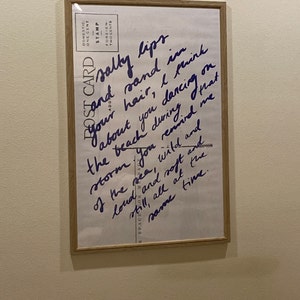 DOMESTIC
ONE CENT
STAMP
HERE
FOREIGN
2 CENTS
POST CARD
salty lips
and sand in
your hair, I think
about you dancing on
the beach during that
storm. you remind me
of the sea, wild and
loud and soft and
still, all at the
same time.